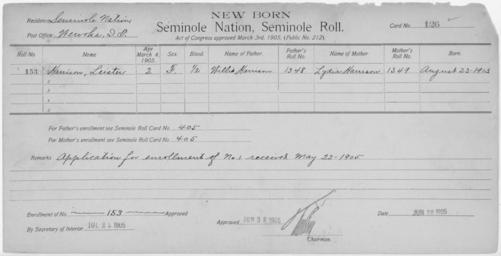 NEW BORN
Residence Seminole Nation Seminole Nation, Seminole Roll. Card No. 126
Post Office Wewoka, I.T. Act of Congress approved March 3rd, 1905, (Public No. 212).
Roll No. Name Age March 4, 1905. Sex. Blood. Name of Father. Father's Roll No. Name of Mother. Mother's Roll No. Born.
153 Harrison, Leister 2 F. 1/2 Willie Harrison 1348 Lydia Harrison 1349 August 22-1903
For Father's enrollment see Seminole Roll Card No. 405
For Mother's enrollment see Seminole Roll Card No. 405
Remarks Application for enrollment of No. 1 received May 22-1905
Enrollment of No. 153 Approved Approved 1905 Date 1905
By Secretary of Interior 1905
Chairman.